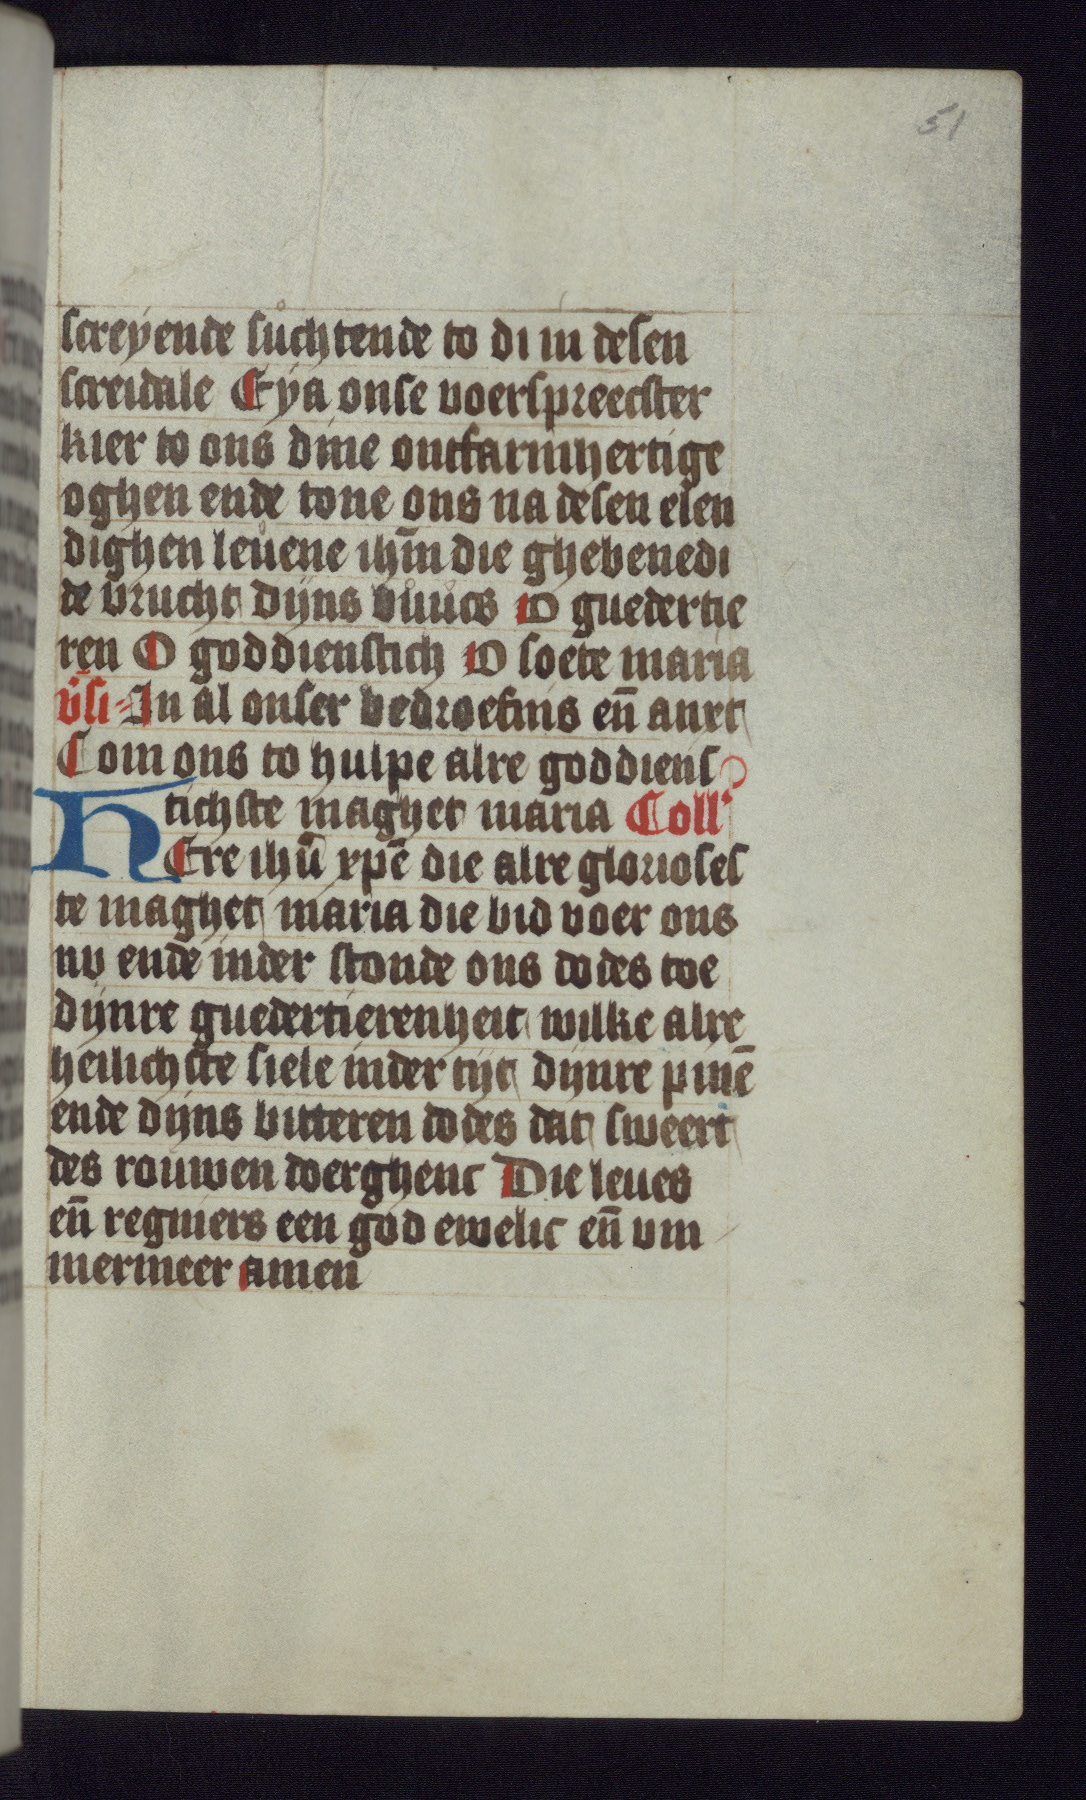 51
screyende sůchtende to di in desen
screidale Eya onse voerspreecster
kier to ons dine ontfarmhertige
oghen ende tone ons na desen elen
dighen leuene ihm̄ die ghebenedi
de vrucht dijns bůucs O guedertie
ren O goddienstich O soete maria
v̄si In al onser bedroefnis en̄ anxt
Com ons to hulpe alre goddiens
tichste maghet maria Coll'
HEre ihū xpē die alre glorioses
te maghet maria die bid voer ons
nv ende inder stonde ons dodes toe
dijnre guedertierenheit wilke alre
heilichste siele inder tijt dijnre pinē
ende dijns bitteren dodes dat sweert
des rouwen doerghenc Die leues
en̄ regniers een god ewelic en̄ vm
mermeer amen